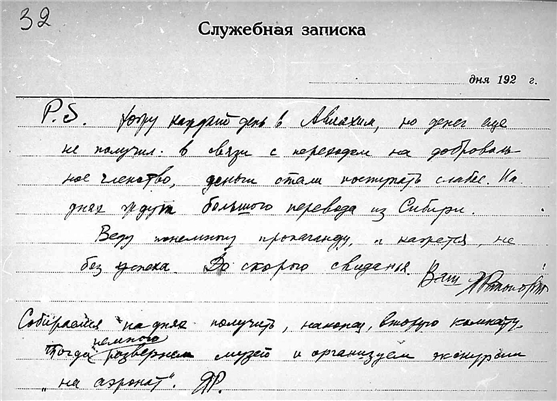 32
Служебная записка
дня 192 г.
P.S. Хожу каждый день в Авиахим, но денег еще
не получил. В связи с переходом на доброволь-
ное членство, деньги стали поступать слабее. На
днях ждут большого перевода из Сибири.
Веду понемногу пропаганду, и кажется, не
без успеха. До скорого свиданья. Ваш
Собираемся на днях получить, наконец, вторую комнату,
немного
тогда развернем музей и организуем экскурсии
„на аэронат". ЯР.